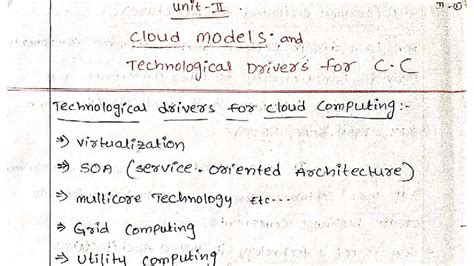 Unit-II
II-①
Cloud models and
Technological Drivers for C.C
Technological drivers for cloud Computing:-
⇒ virtualization
⇒ SOA (service-oriented Architecture)
⇒ multicore Technology Etc...
⇒ Grid computing
⇒ Utility computing